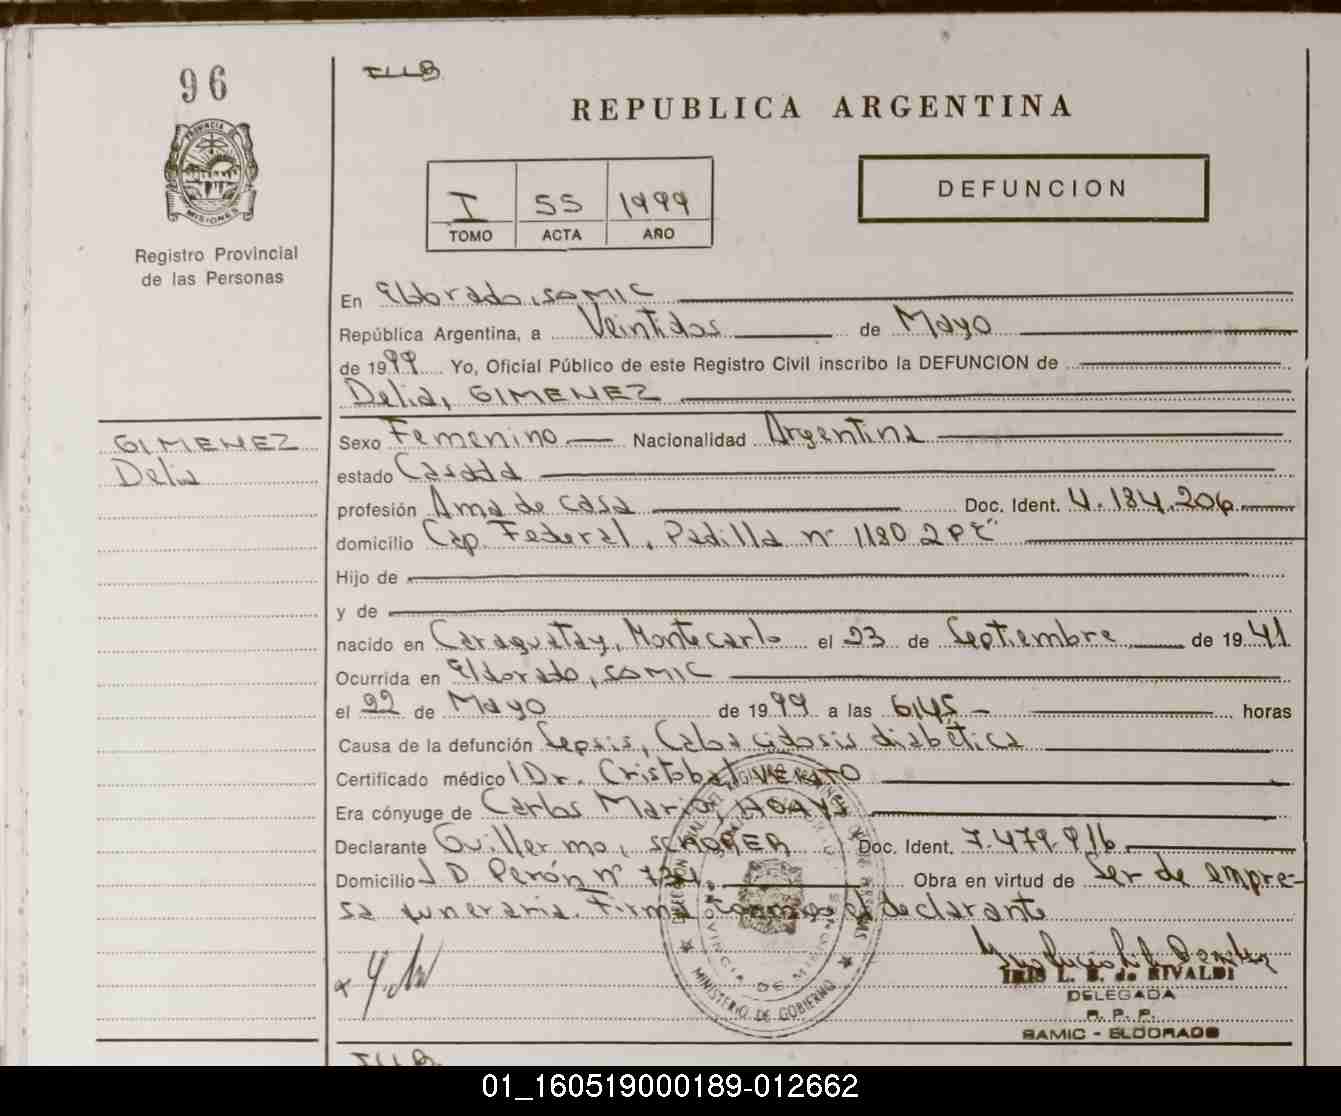 96
PROVINCIA DE
MISIONES
Registro Provincial
de las Personas
REPUBLICA ARGENTINA
I 55 1999
TOMO ACTA AÑO
DEFUNCION
En Eldorado, SAMIC
República Argentina, a Veintidos de Mayo
de 1999 Yo, Oficial Público de este Registro Civil inscribo la DEFUNCION de
Delia, GIMENEZ
GIMENEZ
Delia
Sexo Femenino Nacionalidad Argentina
estado Casada
profesión Ama de casa Doc. Ident. 4.134.206
domicilio Cap. Federal, Padilla nº 1180 2 P
Hijo de
y de
nacido en Caraguatay, Montecarlo el 23 de Septiembre de 1941
Ocurrida en Eldorado, SAMIC
el 22 de Mayo de 1999 a las 6,45 horas
Causa de la defunción Sepsis, diabética
Certificado médico Dr. Cristobal
Era cónyuge de Carlos Maria,
Declarante Guillermo, Doc. Ident. 7.479.916
Domicilio J D Perón nº Obra en virtud de Ser de empre-
sa funeraria. Firma conmigo el declarante
IRIS L. B. de RIVALDI
DELEGADA
R. P. P.
SAMIC - ELDORADO
PROVINCIA DE MISIONES
MINISTERIO DE GOBIERNO
01_160519000189-012662